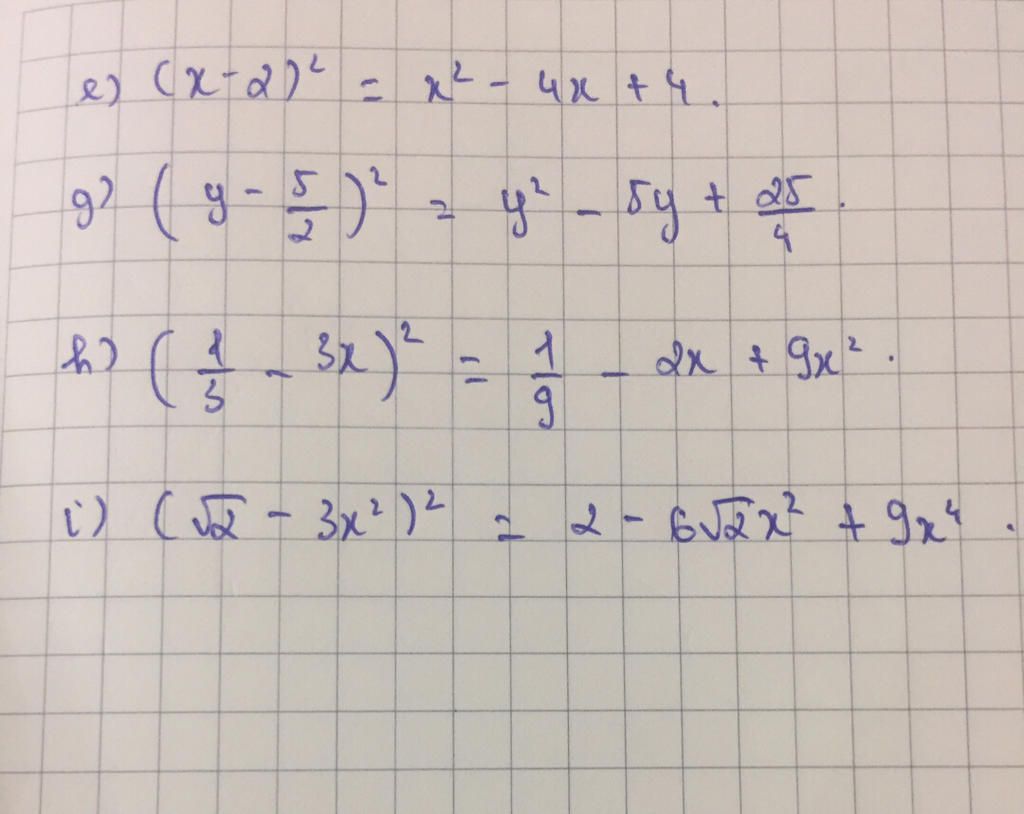 e) (x-2)² = x² - 4x + 4.
g) (y - 5/2)² = y² - 5y + 25/4.
h) (1/3 - 3x)² = 1/9 - 2x + 9x².
i) (√2 - 3x²)² = 2 - 6√2x² + 9x⁴.